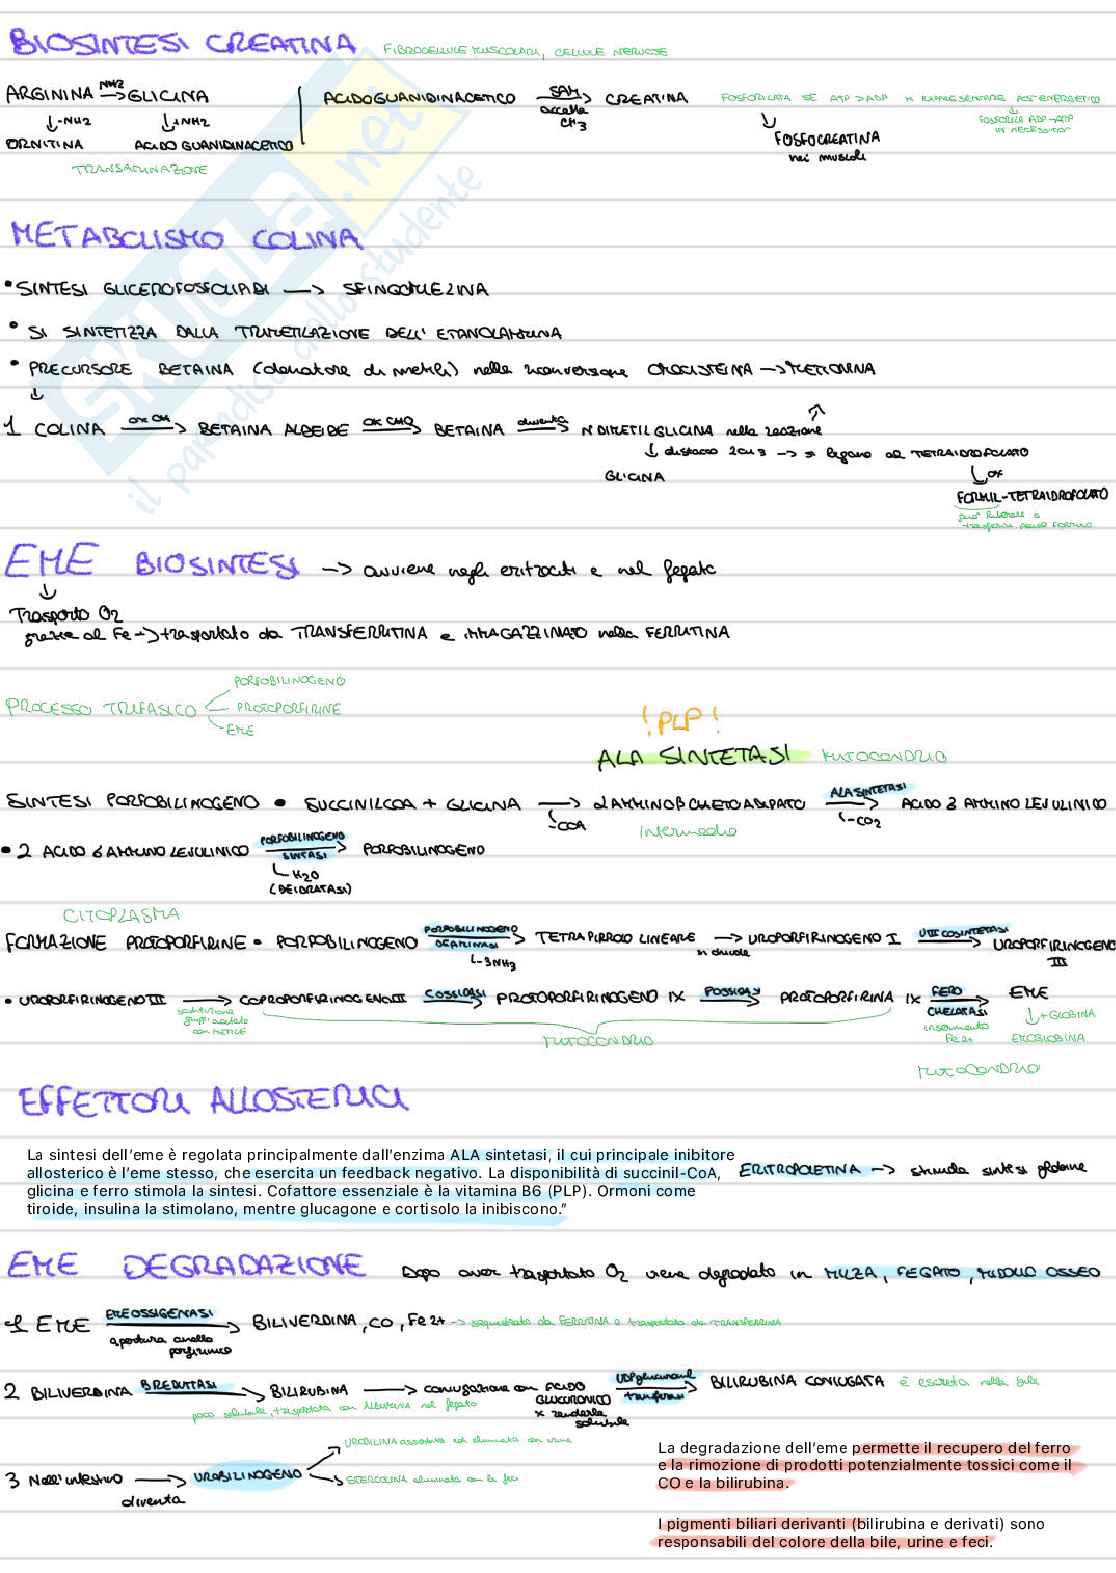 BIOSINTESI CREATINA FIBROCELLULE MUSCOLARI, CELLULE NERVOSE
ARGININA NH2 → GLICINA
↓ -NH2 ↓ +NH2
ORNITINA ACIDO GUANIDINACETICO
TRANSAMINAZIONE
ACIDO GUANIDINACETICO SAM → CREATINA
accetta CH3
FOSFORILATA SE ATP > ADP x RAPPRESENTARE POST ENERGETICO
FOSFORILA ADP → ATP
IN NECESSITÀ
↓ FOSFOCREATINA
nei muscoli
METABOLISMO COLINA
• SINTESI GLICEROFOSFOLIPIDI → SFINGOMIELINA
• SI SINTETIZZA DALLA TRIMETILAZIONE DELL' ETANOLAMMINA
• PRECURSORE BETAINA (donatore di metili) nella riconversione OMOCISTEINA → METIONINA
↓
1 COLINA ox OH → BETAINA ALDEIDE ox CHO → BETAINA diventa → N DIMETILGLICINA nella reazione
↓ distacco 2CH3 → si legano al TETRAIDROFOLATO
GLICINA
↓ ox
FORMIL-TETRAIDROFOLATO
EME BIOSINTESI → avviene negli eritrociti e nel fegato
↓
Trasporto O2
grazie al Fe → trasportato da TRANSFERRITINA e IMMAGAZZINATO nella FERRITINA
PROCESSO TRIFASICO
PORFOBILINOGENO
PROTOPORFIRINE
EME
! PLP !
ALA SINTETASI MITOCONDRIO
SINTESI PORFOBILINOGENO • SUCCINILCOA + GLICINA → 2 AMMINO β CHETOADIPATO ALA SINTETASI → ACIDO δ AMMINO LEVULINICO
-COA Intermedio -CO2
• 2 ACIDO δ AMMINO LEVULINICO PORFOBILINOGENO SINTASI → PORFOBILINOGENO
H2O
(DEIDRATASI)
CITOPLASMA
FORMAZIONE PROTOPORFIRINE • PORFOBILINOGENO PORFOBILINOGENO DEAMINASI → TETRAPIRROLO LINEARE → UROPORFIRINOGENO I UIII COSINTETASI → UROPORFIRINOGENO III
-3NH3 si chiude
• UROPORFIRINOGENO III → COPROPORFIRINOGENO III COSSIDASI → PROTOPORFIRINOGENO IX POSSIDASI → PROTOPORFIRINA IX FERO CHELATASI → EME
sostituzione gruppi acetato con metile
inserimento Fe2+
↓ + GLOBINA
EMOGLOBINA
MITOCONDRIO
MITOCONDRIO
EFFETTORI ALLOSTERICI
La sintesi dell'eme è regolata principalmente dall'enzima ALA sintetasi, il cui principale inibitore
allosterico è l'eme stesso, che esercita un feedback negativo. La disponibilità di succinil-CoA,
glicina e ferro stimola la sintesi. Cofattore essenziale è la vitamina B6 (PLP). Ormoni come
tiroide, insulina la stimolano, mentre glucagone e cortisolo la inibiscono.”
ERITROPOIETINA → stimola sintesi globine
EME DEGRADAZIONE Dopo aver trasportato O2 viene degradato in MILZA, FEGATO, MIDOLLO OSSEO
1 EME EMEOSSIGENASI → BILIVERDINA, CO, Fe2+ → sequestrato da FERRITINA o trasportato da TRANSFERRINA
apertura anello porfirinico
2 BILIVERDINA BREDUTTASI → BILIRUBINA → coniugazione con ACIDO GLUCURONICO UDPglucuronil transferasi → BILIRUBINA CONIUGATA è escreta nella bile
poco solubile, trasportata con ALBUMINA nel fegato
x renderla solubile
3 Nell'intestino → UROBILINOGENO
diventa
UROBILINA assorbita ed eliminata con urine
STERCOBILINA eliminata con le feci
La degradazione dell'eme permette il recupero del ferro
e la rimozione di prodotti potenzialmente tossici come il
CO e la bilirubina.
I pigmenti biliari derivanti (bilirubina e derivati) sono
responsabili del colore della bile, urine e feci.
SKUOLA.net
il paradiso dello studente